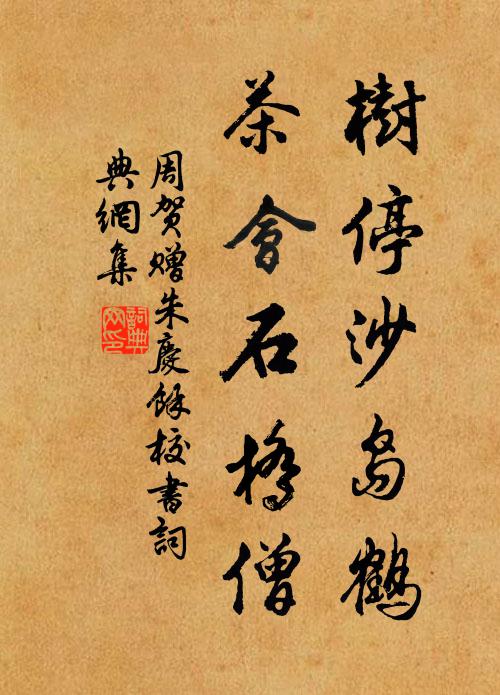 樹停沙島鶴
茶會石橋僧
周賀贈朱慶餘校書詞
典網集
詞典網印